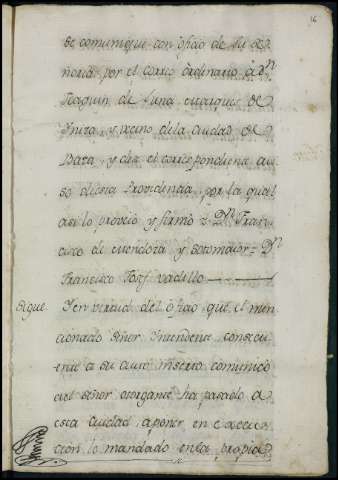 16
se comunique con oficio de su Se
ñoria por el correo ordinario à Dn
Joaquin de Luna Marques de
y vecino de la Ciudad de
Baza, y dé el correspondiente avi
so de esta Providencia, por la qual
asi lo proveio y firmó = Dn Fran
cisco de Mendoza y Sotomaior = Dn
Francisco Josef Vadillo
Sigue Y en virtud del oficio que el men
cionado Señor Yntendente, consecu
ente a su auto inserto comunicó
el Señor otorgante ha pasado a
esta Ciudad, a poner en execu
cion lo mandado en la propia